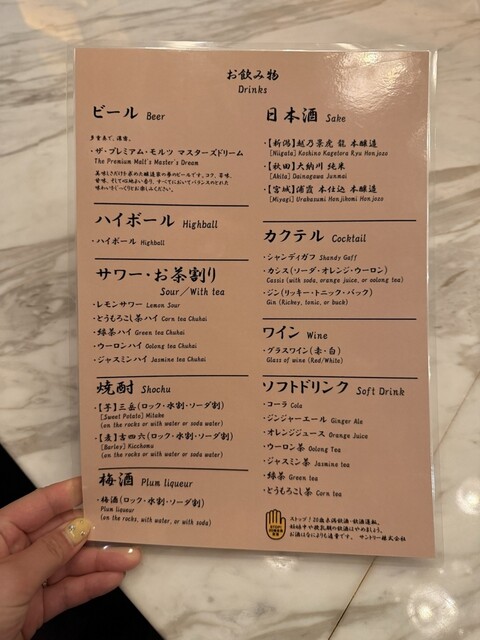 お飲み物
Drinks
ビール Beer
・ザ・プレミアム・モルツ マスターズドリーム
The Premium Malt's Master's Dream
ハイボール Highball
・ハイボール Highball
サワー・お茶割り
Sour／With tea
・レモンサワー Lemon Sour
・とうもろこし茶ハイ Corn tea Chuhai
・緑茶ハイ Green tea Chuhai
・ウーロンハイ Oolong tea Chuhai
・ジャスミンハイ Jasmine tea Chuhai
焼酎 Shochu
・【芋】三岳(ロック・水割・ソーダ割)
[Sweet Potato] Mitake
(on the rocks or with water or soda water)
・【麦】吉四六(ロック・水割・ソーダ割)
[Barley] Kicchomu
(on the rocks or with water or soda water)
梅酒 Plum liqueur
・梅酒(ロック・水割・ソーダ割)
Plum liqueur
(on the rocks, with water, or with soda)
日本酒 Sake
・【新潟】越乃景虎 龍 本醸造
[Niigata] Koshino Kagetora Ryu Honjozo
・【秋田】大納川 純米
[Akita] Dainagawa Junmai
・【宮城】浦霞 本仕込 本醸造
[Miyagi] Urakasumi Honjikomi Honjozo
カクテル Cocktail
・シャンディガフ Shandy Gaff
・カシス(ソーダ・オレンジ・ウーロン)
Cassis (with soda, orange juice, or oolong tea)
・ジン(リッキー・トニック・バック)
Gin (Rickey, tonic, or buck)
ワイン Wine
・グラスワイン(赤・白)
Glass of wine (Red/White)
ソフトドリンク Soft Drink
・コーラ Cola
・ジンジャーエール Ginger Ale
・オレンジジュース Orange Juice
・ウーロン茶 Oolong Tea
・ジャスミン茶 Jasmine tea
・緑茶 Green tea
・とうもろこし茶 Corn tea
ストップ！20歳未満飲酒・飲酒運転。
妊娠中や授乳期の飲酒はやめましょう。
お酒はなによりも適量です。 サントリー株式会社